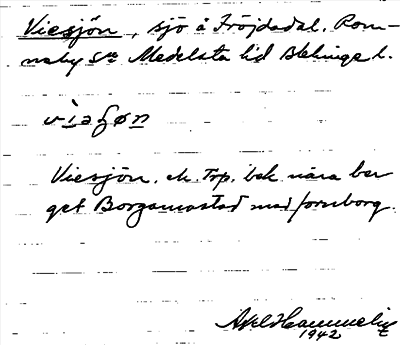 Viesjön, sjö å Fröjdadal, Ron-
neby sn Medelsta hd Blekinge l.
Viesjön. ek. Trp. bek nära ber
get Borgamastad med fornborg.
Axel
1942